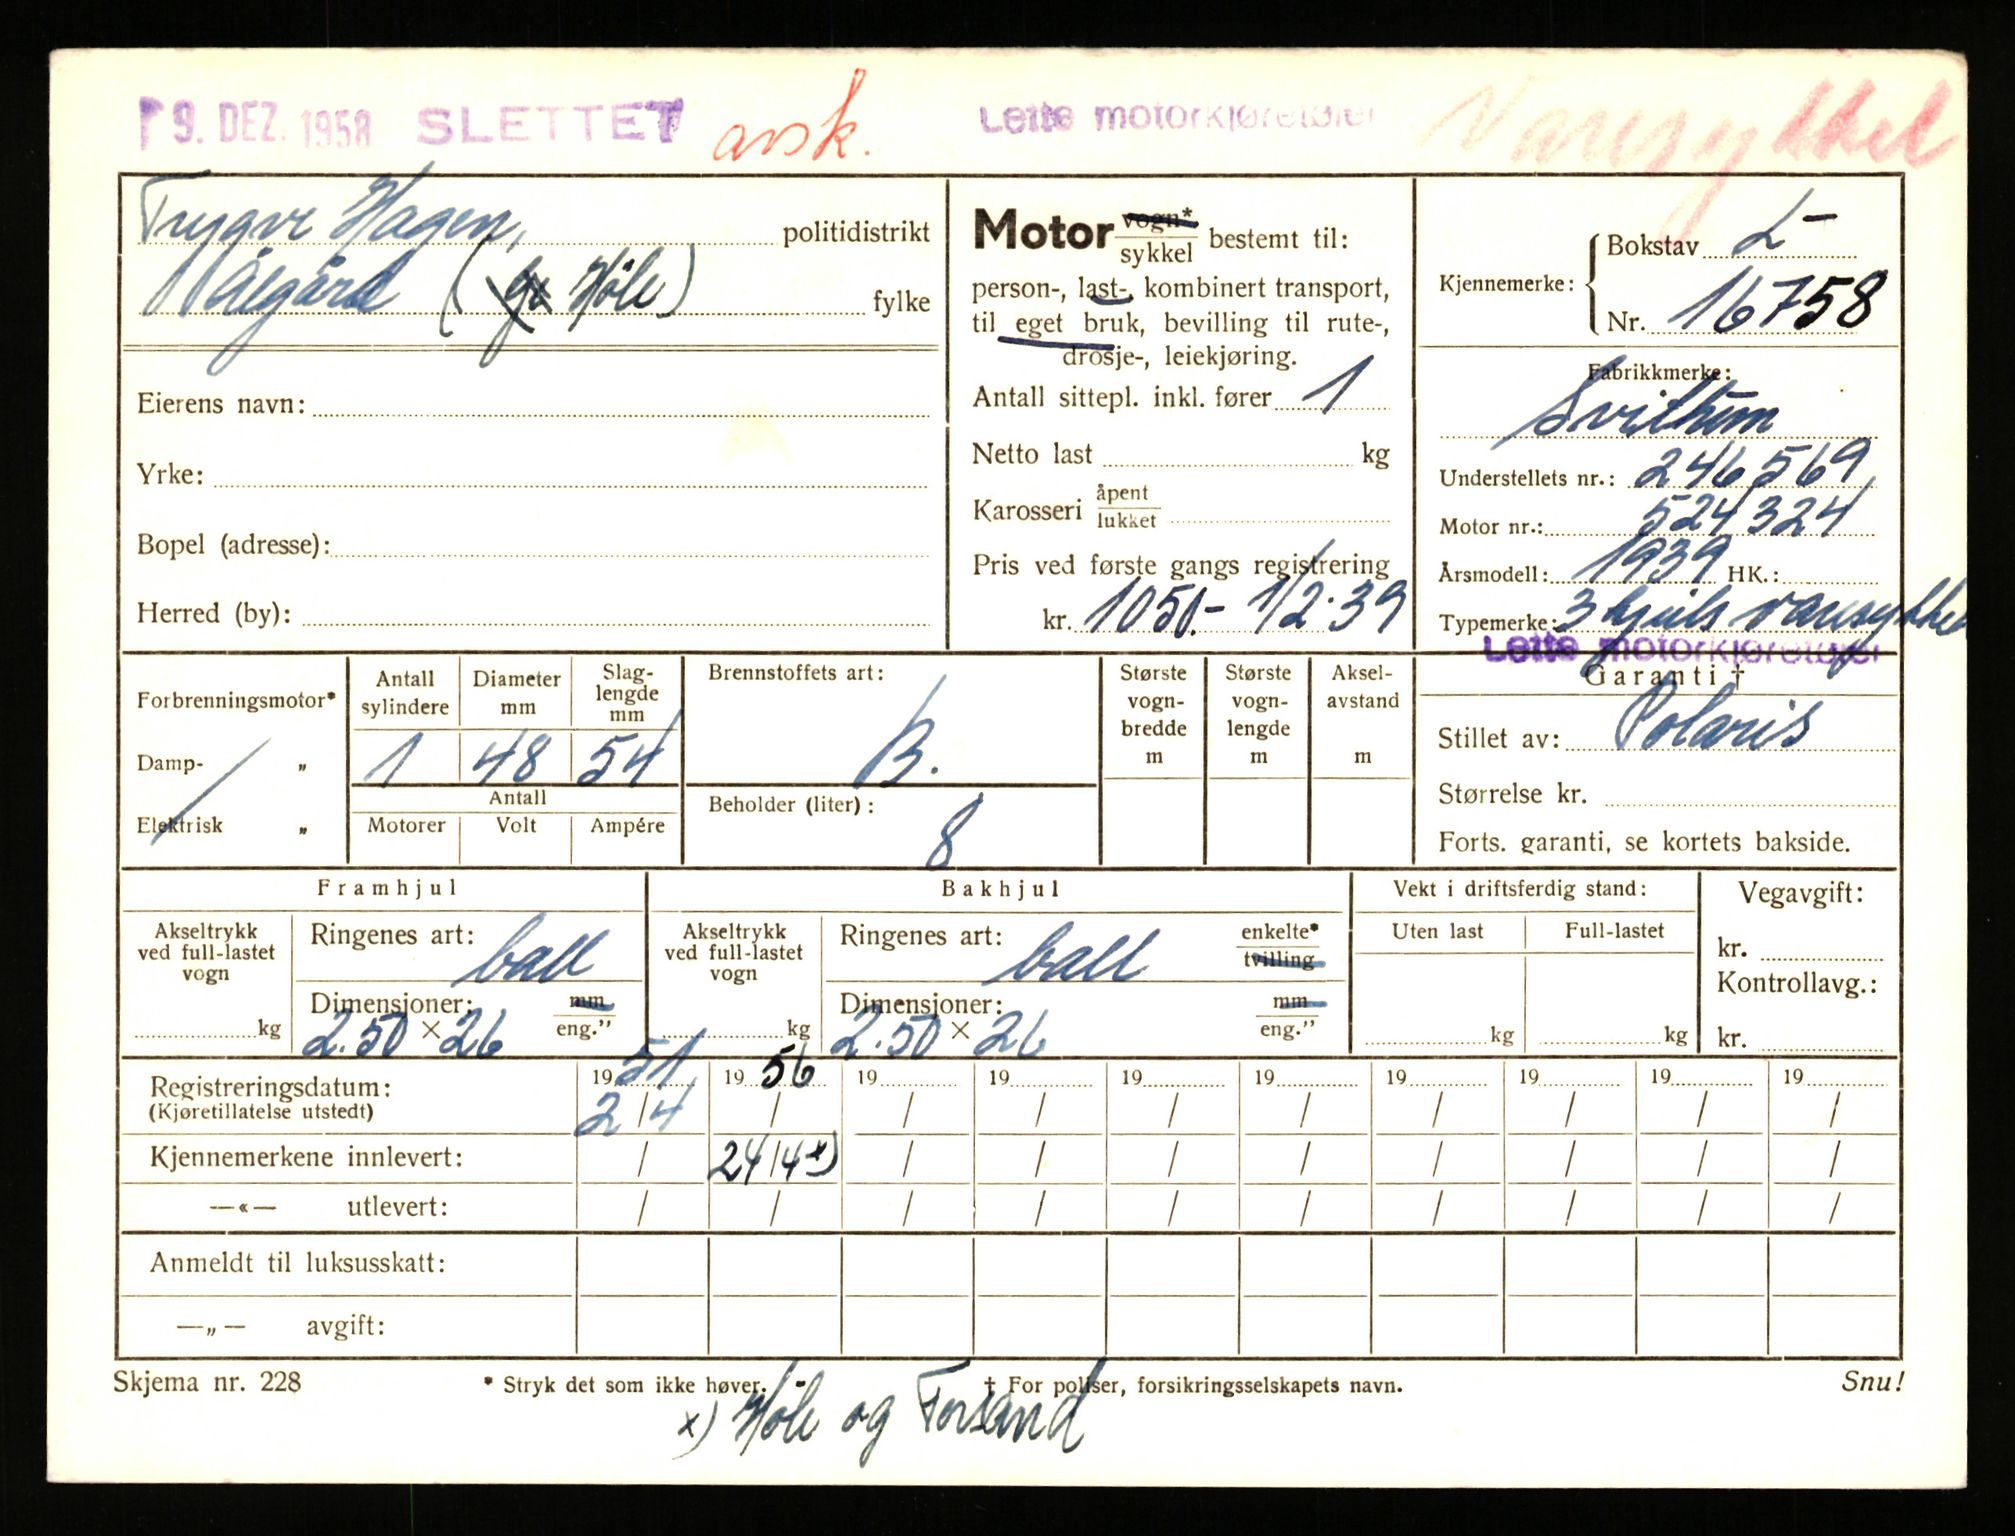 9. DEZ. 1958 SLETTET avsk. Lette motorkjøretøier Varesykkel
Trygve Hagen, politidistrikt
Ålgård ( Høle) fylke
Eierens navn:
Yrke:
Bopel (adresse):
Herred (by):
Motor vogn* sykkel bestemt til:
person-, last-, kombinert transport,
til eget bruk, bevilling til rute-,
drosje-, leiekjøring.
Antall sittepl. inkl. fører 1
Netto last kg
Karosseri åpent lukket
Pris ved første gangs registrering
kr. 1050.- 1/2.39
Kjennemerke: Bokstav L-
Nr. 16758
Fabrikkmerke:
Svithun
Understellets nr.: 246569
Motor nr.: 524324
Årsmodell: 1939 HK.:
Typemerke: 3 hjuls varesykkel
Lette motorkjøretøier
Forbrenningsmotor*
Damp- „
Elektrisk „
Antall sylindere 1
Diameter mm 48
Slag-lengde mm 54
Antall
Motorer Volt Ampére
Brennstoffets art:
B.
Beholder (liter):
8
Største vogn-bredde m
Største vogn-lengde m
Aksel-avstand m
Garanti †
Stillet av: Polaris
Størrelse kr.
Forts. garanti, se kortets bakside.
Framhjul
Akseltrykk ved full-lastet vogn
kg
Ringenes art: ball
Dimensjoner: mm
2.50 × 26 eng.”
Bakhjul
Akseltrykk ved full-lastet vogn
kg
Ringenes art: ball enkelte* tvilling
Dimensjoner: mm
2.50 × 26 eng.”
Vekt i driftsferdig stand:
Uten last Full-lastet
kg kg
Vegavgift:
kr.
Kontrollavg.:
kr.
Registreringsdatum: 1951 1956 19 19 19 19 19 19 19 19
(Kjøretillatelse utstedt) 2/4 / / / / / / / / /
Kjennemerkene innlevert: / 24/4 x) / / / / / / / /
—«— utlevert: / / / / / / / / / /
Anmeldt til luksusskatt:
—„— avgift:
Skjema nr. 228 * Stryk det som ikke høver. † For poliser, forsikringsselskapets navn. Snu!
x) Høle og Forsand